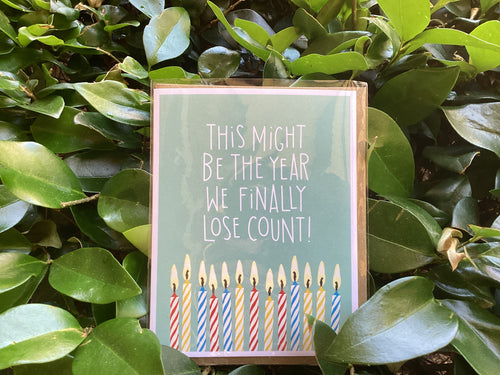 THiS MiGHT
BE THE YEAR
WE FiNALLY
LOSE COUNT!